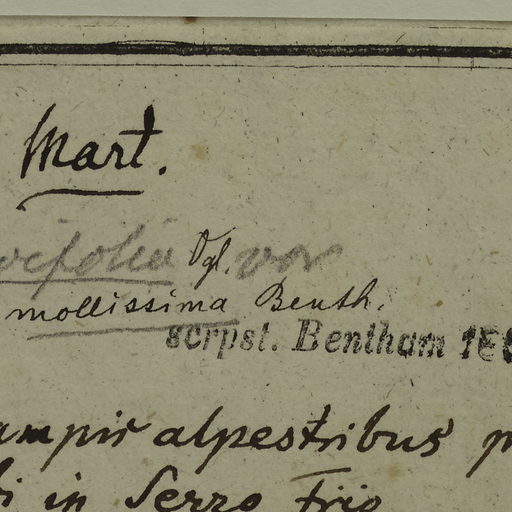 Mart.
Vgl. var
mollissima Benth.
scrpst. Bentham
alpestribus
in Serro Frio